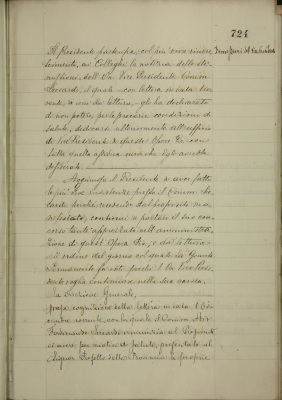 724
Il Presidente partecipa, col più vivo rincre
scimento, ai Colleghi la notizia delle di
missioni dell' On. Vice Presidente Comm
il quale con lettera in data
di cui dà lettura, gli ha dichiarato
di non poter, per le precarie condizioni di
salute, dedicarsi all'ufficio
di Vice Presidente di questa Opera Pia, con
quella che egli avrebbe
desiderato.
Aggiunge il Presidente di aver fatto
le più vive insistenze presso il Comm.
perchè recedendo dal proposito ma
nifestato, continui a portare il suo con
corso tanto apprezzato nell' amministra
zione di quest' Opera Pia, e dà lettura
di ordine del giorno col quale la Giunta
Permanente fa voti perchè l' On. Vice Presi
dente voglia continuare nella sua carica.
La Direzione Generale,
presa cognizione della lettera in data
corrente, con la quale il Comm. Avv.
Ferdinando rinunzia al
per motivi di salute, presentate al
Signor Prefetto della Provincia le proprie